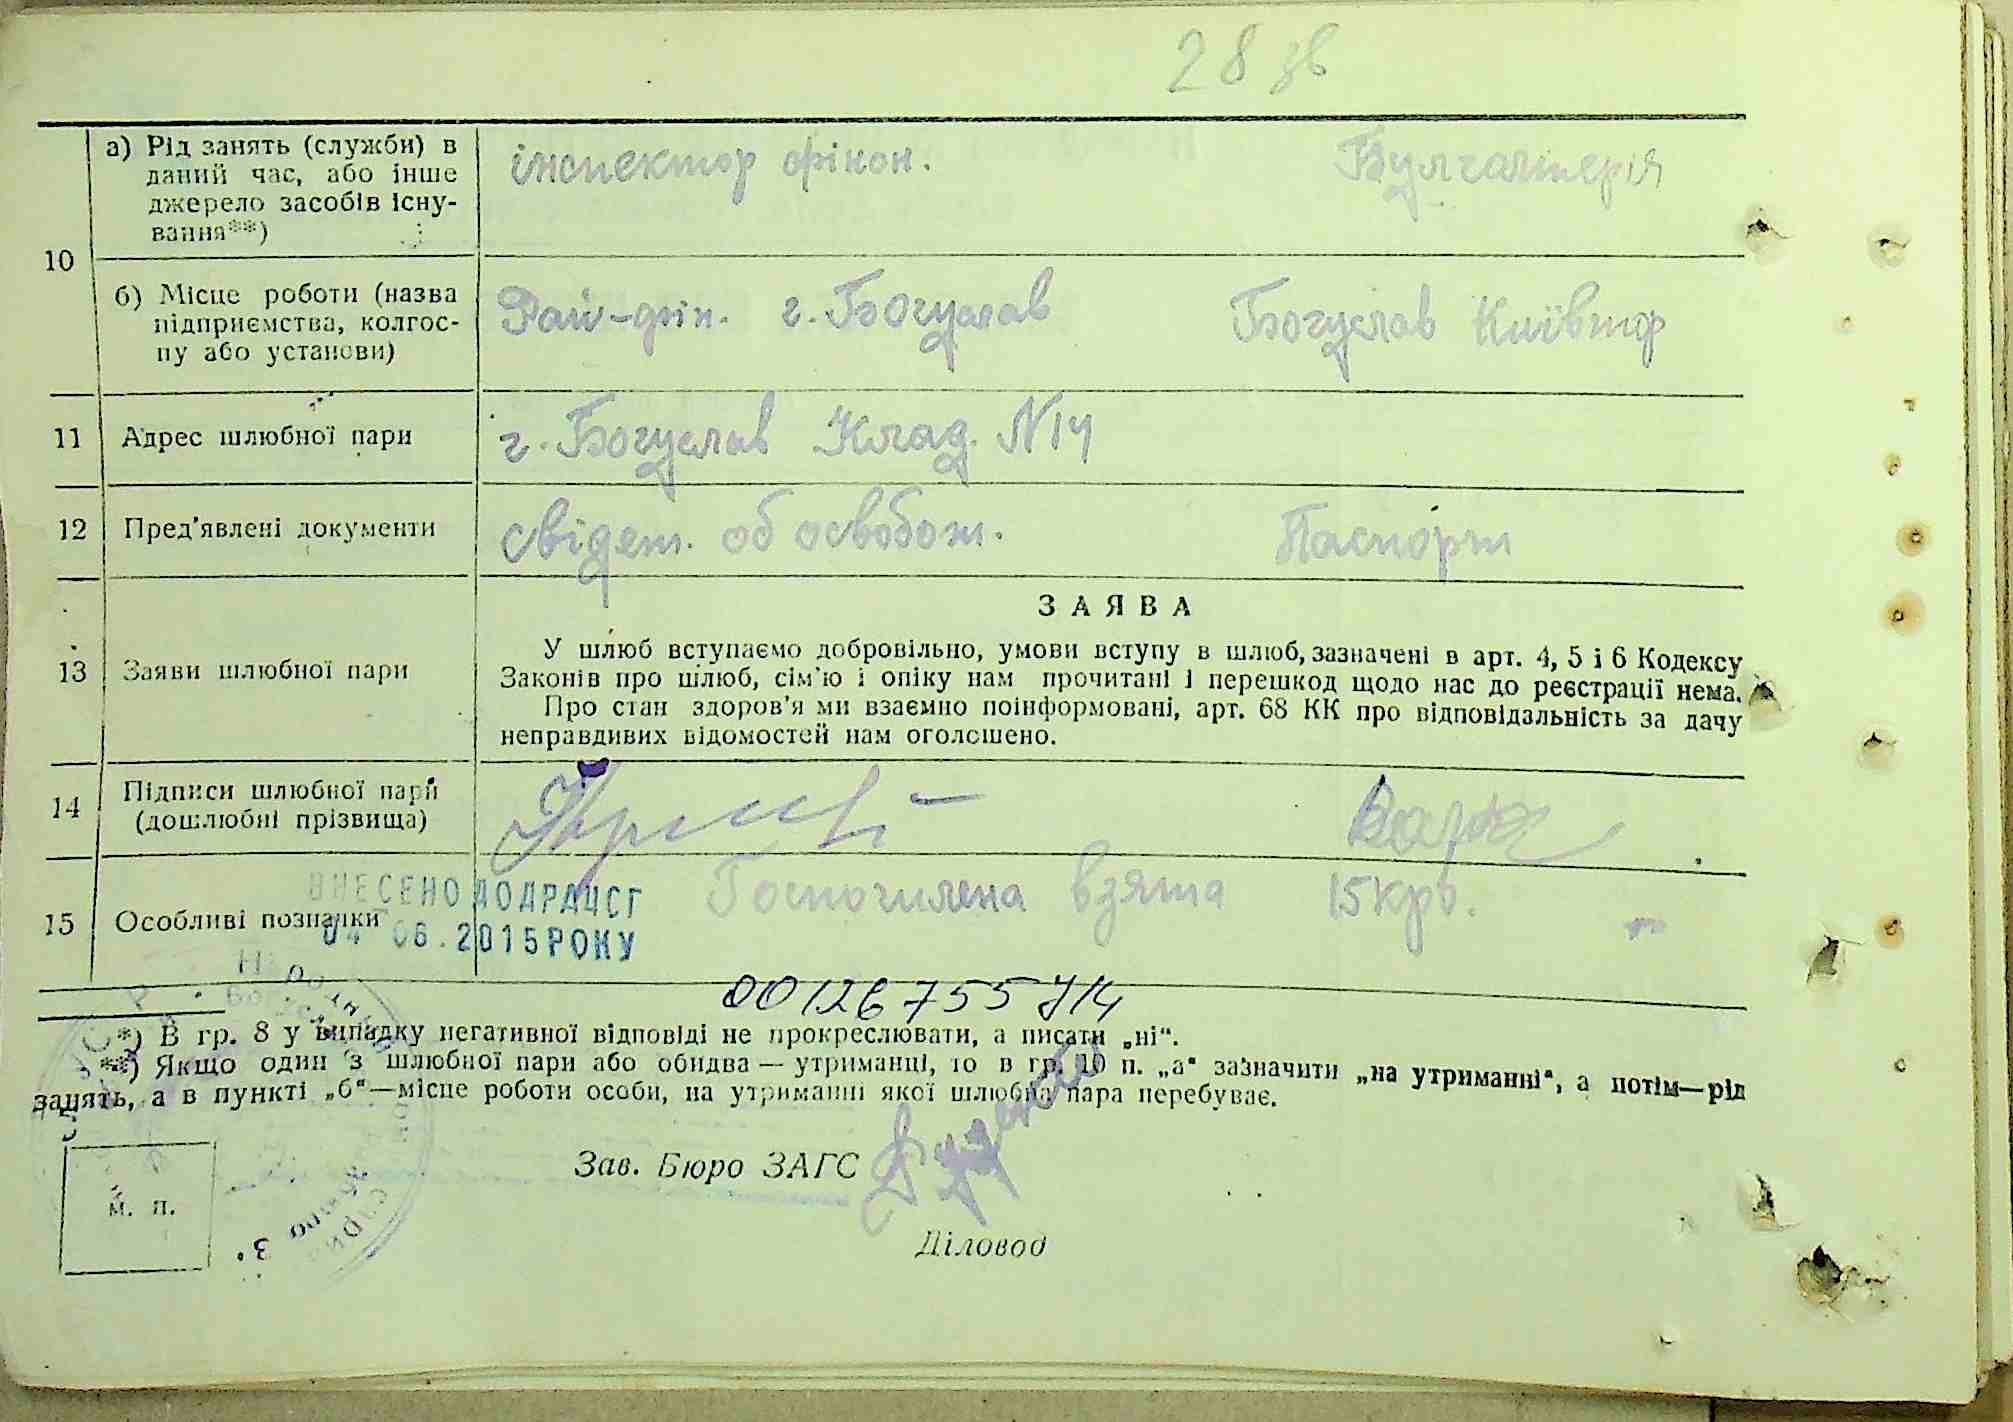 28 зв
а) Рід занять (служби) в
даний час, або інше
джерело засобів існу-
вання**)
інспектор фінон.
Булгалтерія
10
б) Місце роботи (назва
підприємства, колгос-
пу або установи)
Рай-фін. г. Богуслав
Богуслав Київтор
11 Адрес шлюбної пари
г. Богуслав Клад. N14
12 Пред'явлені документи
свідет. об освобож.
Паспорт
13 Заяви шлюбної пари
ЗАЯВА
У шлюб вступаємо добровільно, умови вступу в шлюб, зазначені в арт. 4, 5 і 6 Кодексу
Законів про шлюб, сім'ю і опіку нам прочитані і перешкод щодо нас до реєстрації нема.
Про стан здоров'я ми взаємно поінформовані, арт. 68 КК про відповідальність за дачу
неправдивих відомостей нам оголошено.
14 Підписи шлюбної пари
(дошлюбні прізвища)
15 Особливі позначки
ВНЕСЕНО ДО ДРАЦСГ
04 06.2015 РОКУ
взята 15 крб.
00126755714
*) В гр. 8 у випадку негативної відповіді не прокреслювати, а писати „ні“.
**) Якщо один з шлюбної пари або обидва — утриманці, то в гр. 10 п. „а“ зазначити „на утриманні“, а потім—рід
занять, а в пункті „б“—місце роботи особи, на утриманні якої шлюбна пара перебуває.
Зав. Бюро ЗАГС
м. п.
Діловод